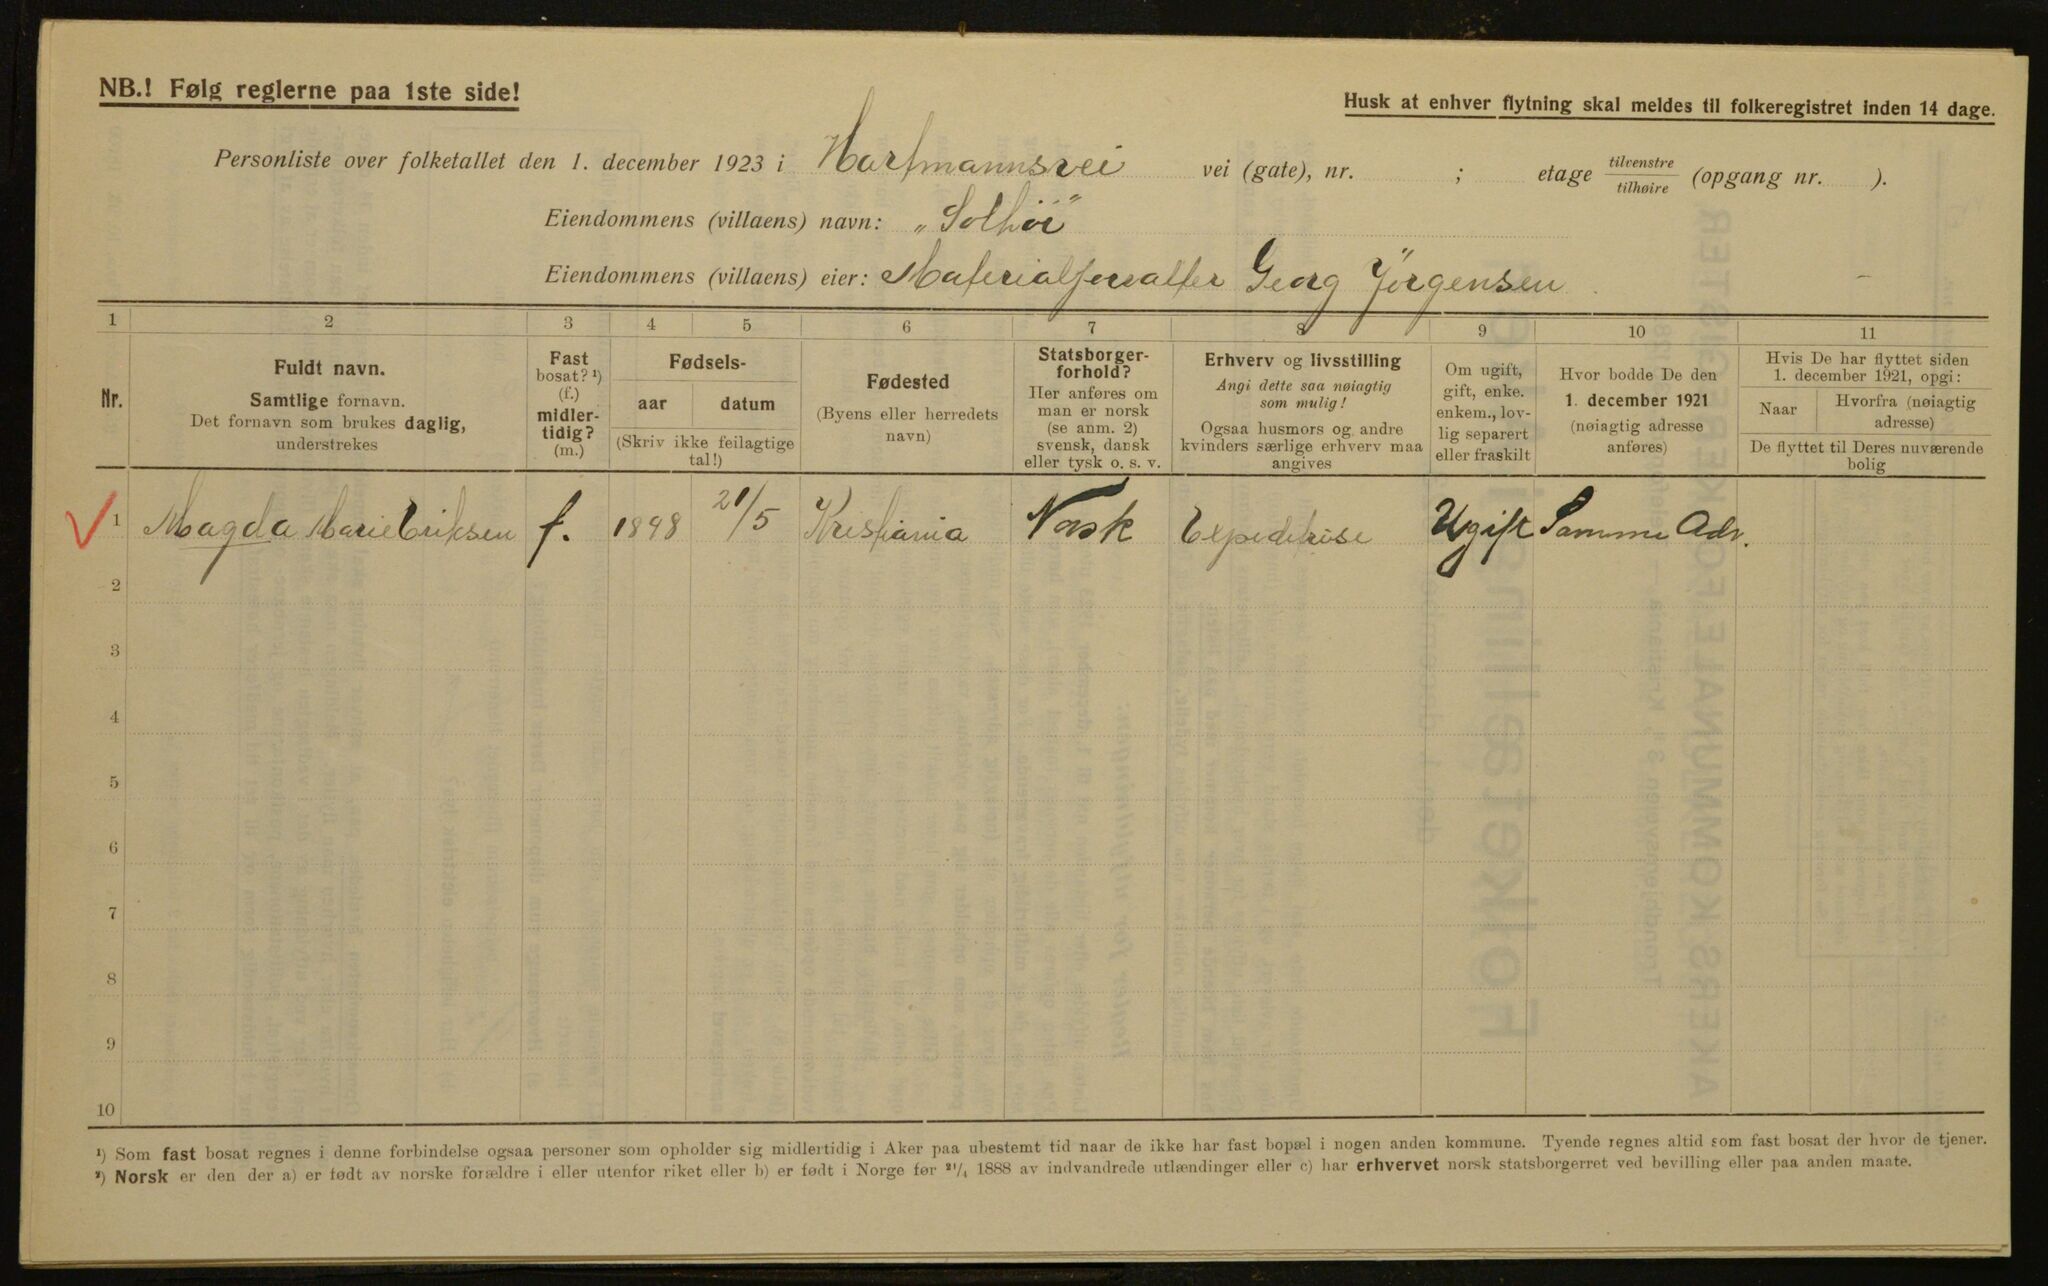 NB.! Følg reglerne paa 1ste side!
Husk at enhver flytning skal meldes til folkeregistret inden 14 dage.
Personliste over folketallet den 1. december 1923 i Hartmannsvei vei (gate), nr. ; etage tilvenstre/tilhøire (opgang nr. ).
Eiendommens (villaens) navn: „Solhöi"
Eiendommens (villaens) eier: Materialforvalter Georg Jörgensen
1 2 3 4 5 6 7 8 9 10 11
Nr.
Fuldt navn.
Samtlige fornavn.
Det fornavn som brukes daglig,
understrekes
Fast
bosat? ¹)
(f.)
midler-
tidig?
(m.)
Fødsels-
aar datum
(Skriv ikke feilagtige
tal!)
Fødested
(Byens eller herredets
navn)
Statsborger-
forhold?
Her anføres om
man er norsk
(se anm. 2)
svensk, dansk
eller tysk o. s. v.
Erhverv og livsstilling
Angi dette saa nøiagtig
som mulig!
Ogsaa husmors og andre
kvinders særlige erhverv maa
angives
Om ugift,
gift, enke.
enkem., lov-
lig separert
eller fraskilt
Hvor bodde De den
1. december 1921
(nøiagtig adresse
anføres)
Hvis De har flyttet siden
1. december 1921, opgi:
Naar Hvorfra (nøiagtig
adresse)
De flyttet til Deres nuværende
bolig
1 Magda Marie Eriksen f. 1898 21/5 Kristiania Norsk Expeditrise Ugift Samme Adr.
2
3
4
5
6
7
8
9
10
¹) Som fast bosat regnes i denne forbindelse ogsaa personer som opholder sig midlertidig i Aker paa ubestemt tid naar de ikke har fast bopæl i nogen anden kommune. Tyende regnes altid som fast bosat der hvor de tjener.
²) Norsk er den der a) er født av norske forældre i eller utenfor riket eller b) er født i Norge før ²¹/₄ 1888 av indvandrede utlændinger eller c) har erhvervet norsk statsborgerret ved bevilling eller paa anden maate.